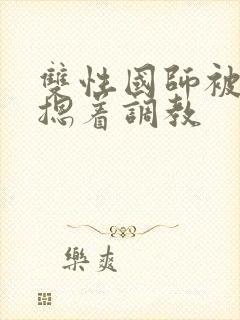 雙性國師被
摁着調教
樂爽